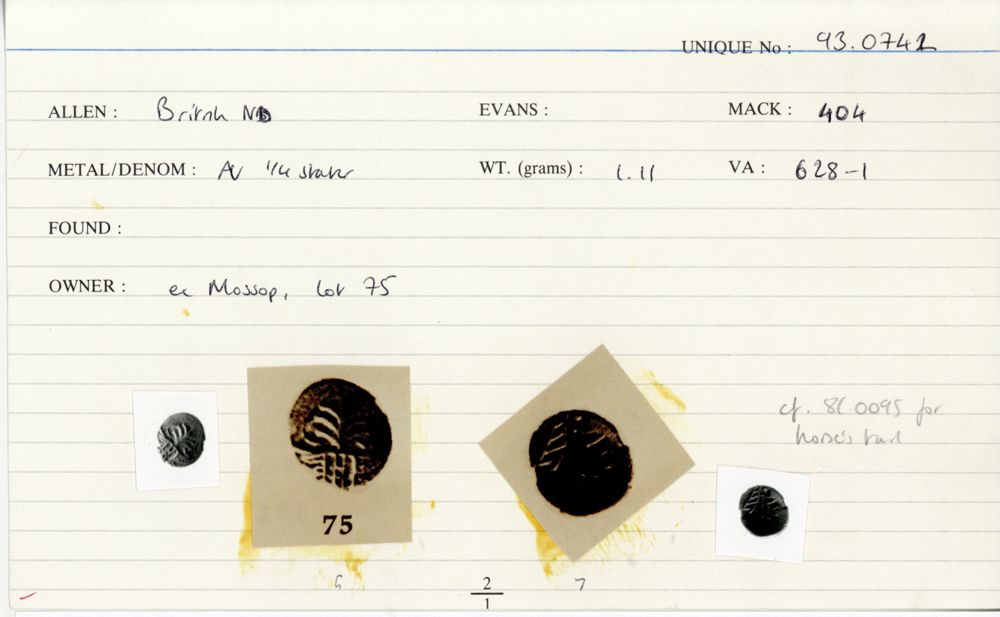 UNIQUE No : 93.0742
ALLEN : British EVANS : MACK : 404
METAL/DENOM : AV 1/4 stater WT. (grams) : 1.11 VA : 628-1
FOUND :
OWNER : ex Mossop, lot 75
cf. 0095 for
horse's tail
75
2
1
7